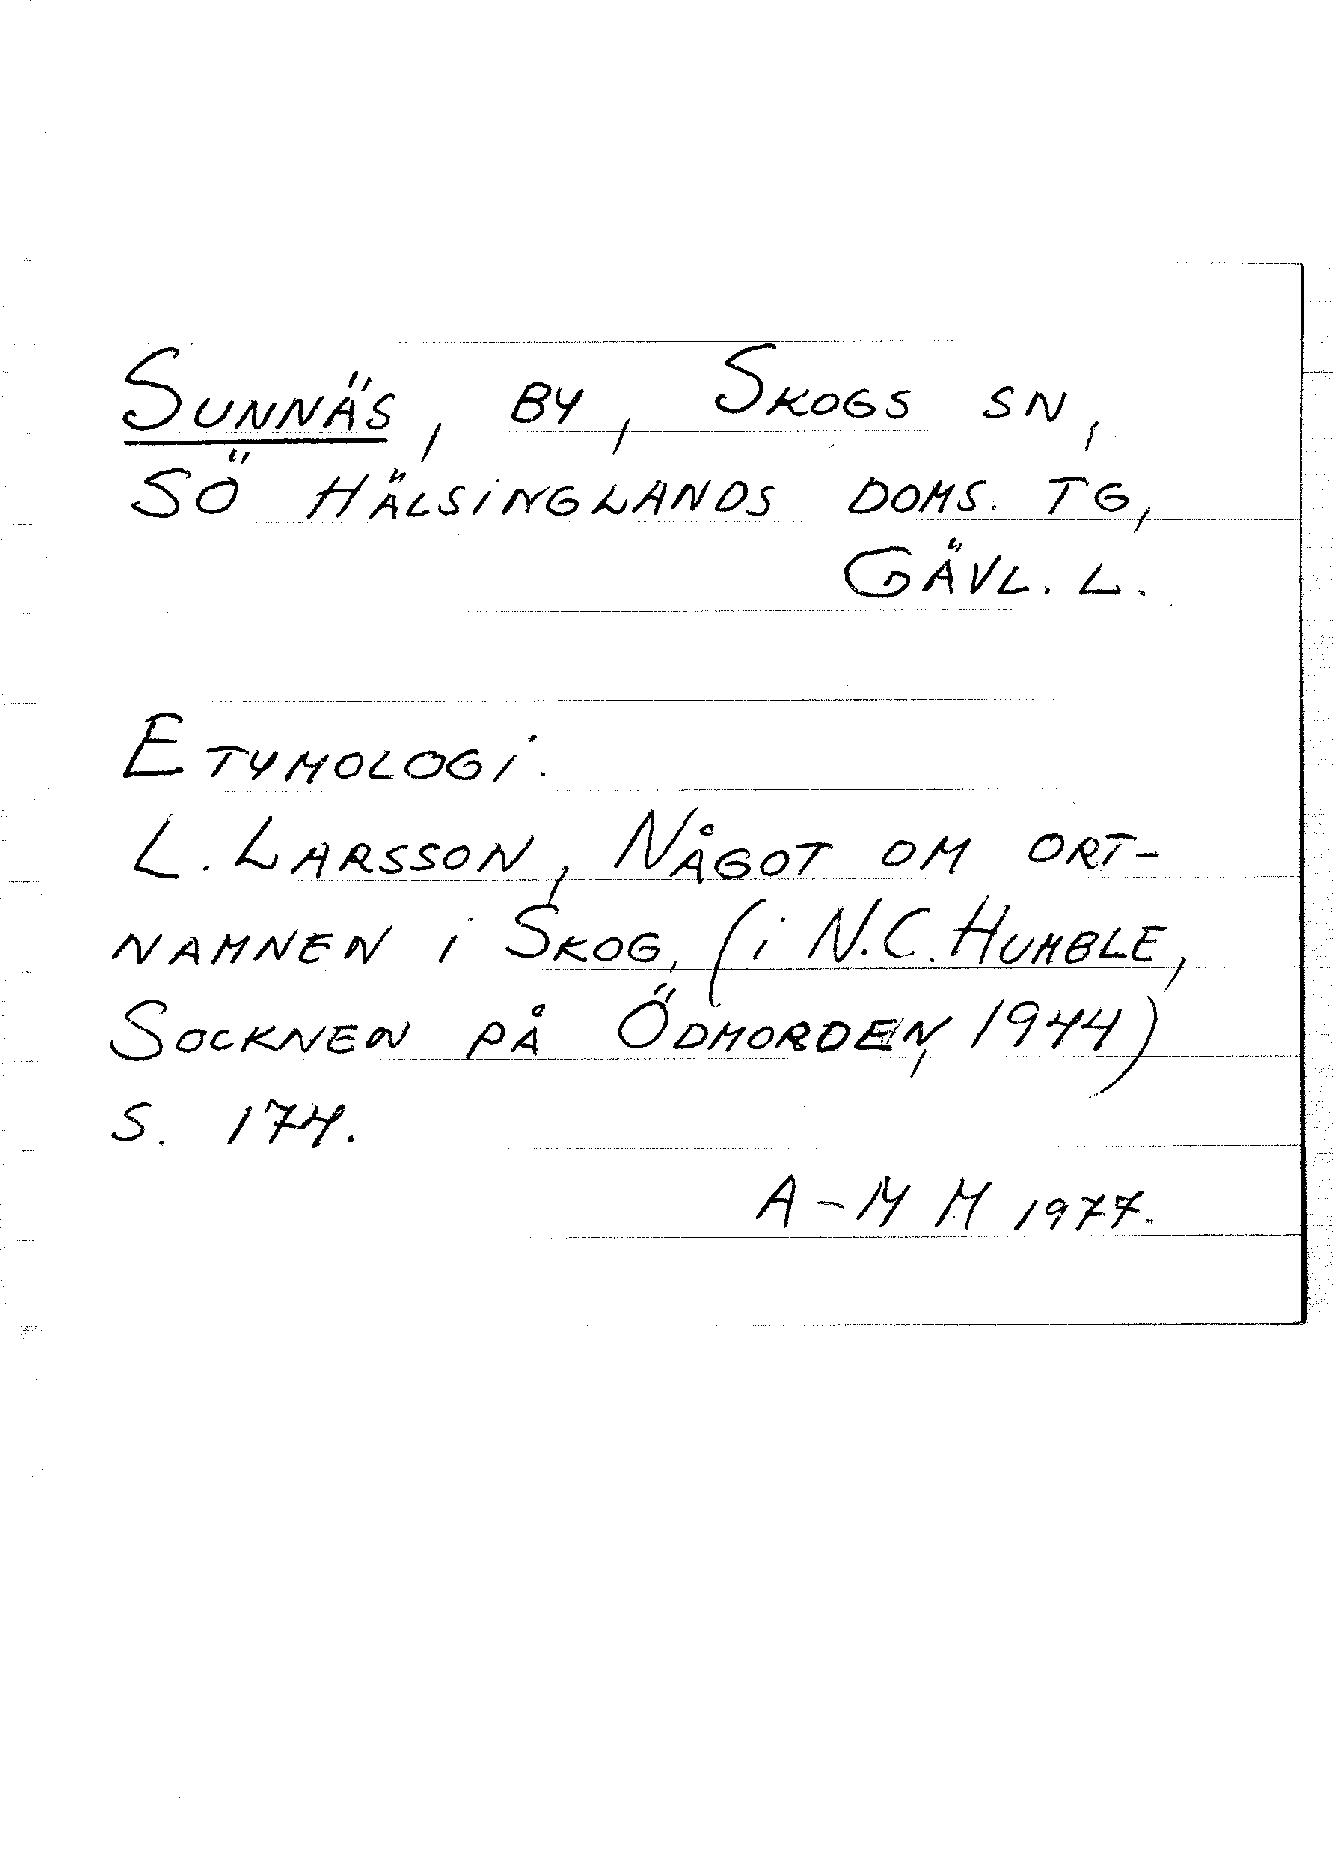 Sunnäs, by, Skogs sn,
Sö Hälsinglands doms. tg,
Gävl. l.
Etymologi.
L. Larsson, Något om ort-
namnen i Skog, (i N.C. Humble,
Socknen på Ödmorden, 1944)
s. 174.
A-M M 1977.